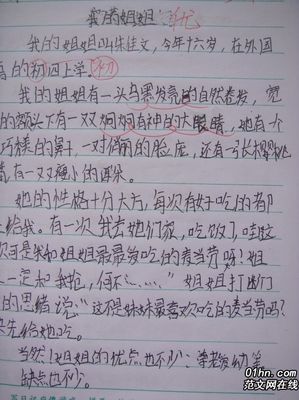 我的姐姐 优
我的姐姐叫朱佳文，今年十六岁，在外国
的初四上学。初
我的姐姐有一头乌黑发亮的自然卷发，宽
的额头下有一双炯炯有神的大眼睛，她有个
巧样的鼻，一对俏丽的脸庞，还有一张樱桃
，有一双瘦小的
她的性格十分大方，每次有好吃的都
给我。有一次我去她们家，吃饭了，哇这
可是我和姐姐最最爱吃的麦当劳呀！姐
一定和我抢，何不……”姐姐打断了
的思绪说“这不是妹妹最喜欢吃的麦当劳吗？
先给她吃。
当然！姐姐的优点也不少：
缺点也不少。
01hn.com
范文网在线